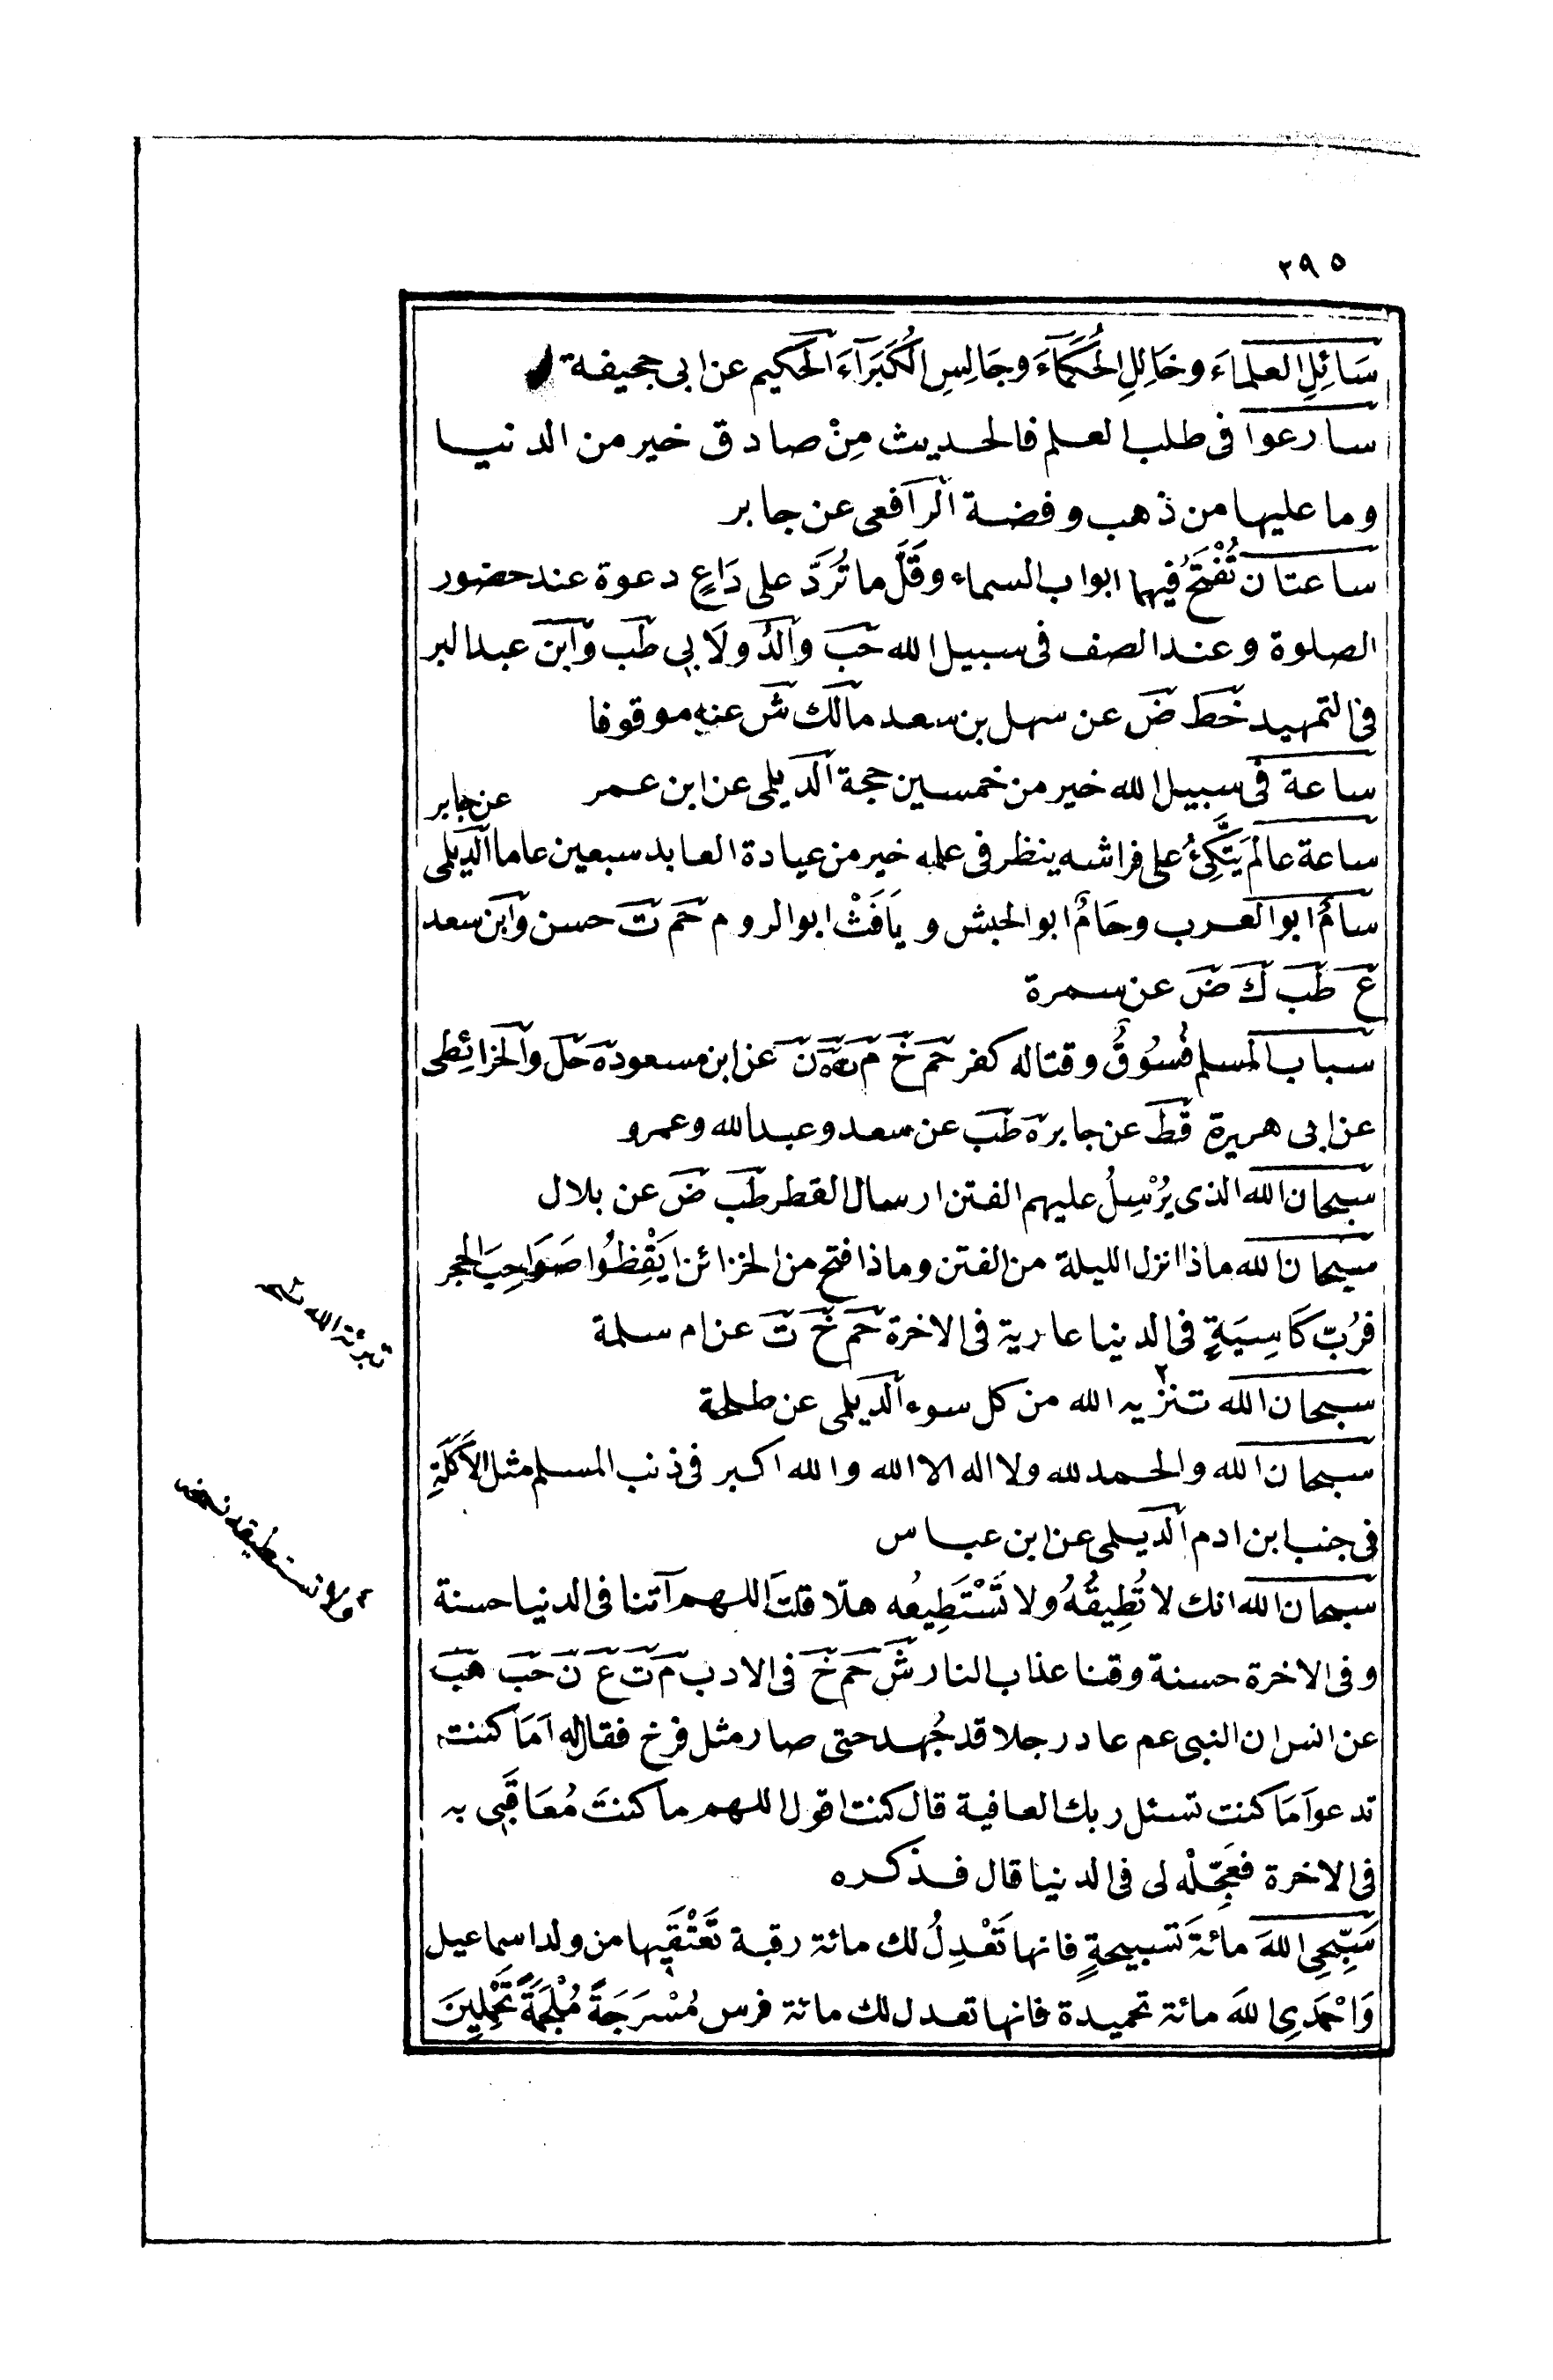 ٢٩٥
سَائِلِ العلماءَ وخَالِلِ الحُكَمَآءَ وجَالِسِ الكُبَرَآءَ الحكيم عن ابى جحيفة
سارعوا فى طلب العلم فالحديث مِنْ صادق خير من الدنيا
وما عليها من ذهب وفضة الرافعى عن جابر
ساعتان تُفْتَحُ فيهما ابواب السماء وقَلَّ ما تُرَدَّ على دَاعٍ دعوة عند حضور
الصلوة وعند الصف فى سبيل الله حب والدُولَابِى طب وابن عبد البر
فى التمهيد خط ض عن سهل بن سعد مالك ش عنه موقوفا
ساعة فى سبيل الله خير من خمسين حجة الديلمى عن ابن عمر
عن جابر
ساعة عالم يَتَّكِئُ على فراشه ينظر فى علمه خير من عبادة العابد سبعين عاما الديلمى
سامُ ابو العرب وحَامُ ابو الحبش ويَافَثْ ابو الروم حم ت حسن وابن سعد
ع طب ك ض عن سمرة
سباب المسلم فُسُوقٌ وقتاله كفر حم خ م ت ه ن عن ابن مسعود ه حل والخرائِطى
عن ابى هريرة قط عن جابر ه طب عن سعد وعبد الله وعمرو
سبحان الله الذى يُرْسِلُ عليهم الفتن ارسال القطر طب ض عن بلال
سبحان الله ماذا انزل الليلة من الفتن وماذا فتح من الخزائن ايقِظُوا صَوَاحِبَ الحجر
فرُبّ كَاسِيَةٍ فى الدنيا عارية فى الاخرة حم خ ت عن ام سلمة
سبحان الله تنزيه الله من كل سوء الديلمى عن طلحة
تبرئة الله
سبحان الله والحمد لله ولا اله الا الله والله اكبر فى ذنب المسلم مثل الآكِلَةِ
فى جنب ابن ادم الديلمى عن ابن عباس
سبحان الله انك لا تُطِيقُهُ ولا تَسْتَطِيعُه هلّا قلتَ اللهم آتنا فى الدنيا حسنة
ولا تستطيقه نسخه
وفى الاخرة حسنة وقنا عذاب النار ش حم خ فى الادب م ت ع ن حب هب
عن انس ان النبى عم عاد رجلا قد جُهد حتى صار مثل فرخ فقال له اَمَا كنت
تدعو اَمَا كنت تسئل ربك العافية قال كنت اقول اللهم ما كنتَ مُعَاقِبِى به
فى الاخرة فعَجِّلْه لى فى الدنيا قال فذكره
سَبِّحِى اللهَ مائةَ تسبيحةٍ فانها تَعْدِلُ لك مائة رقبة تَعْتِقِيها من ولد اسماعيل
وَاحْمَدِى اللهَ مائة تحميدة فانها تعدل لك مائة فرس مُسْرَجَةً مُلْجَمَةً تَحْمِلِينَ